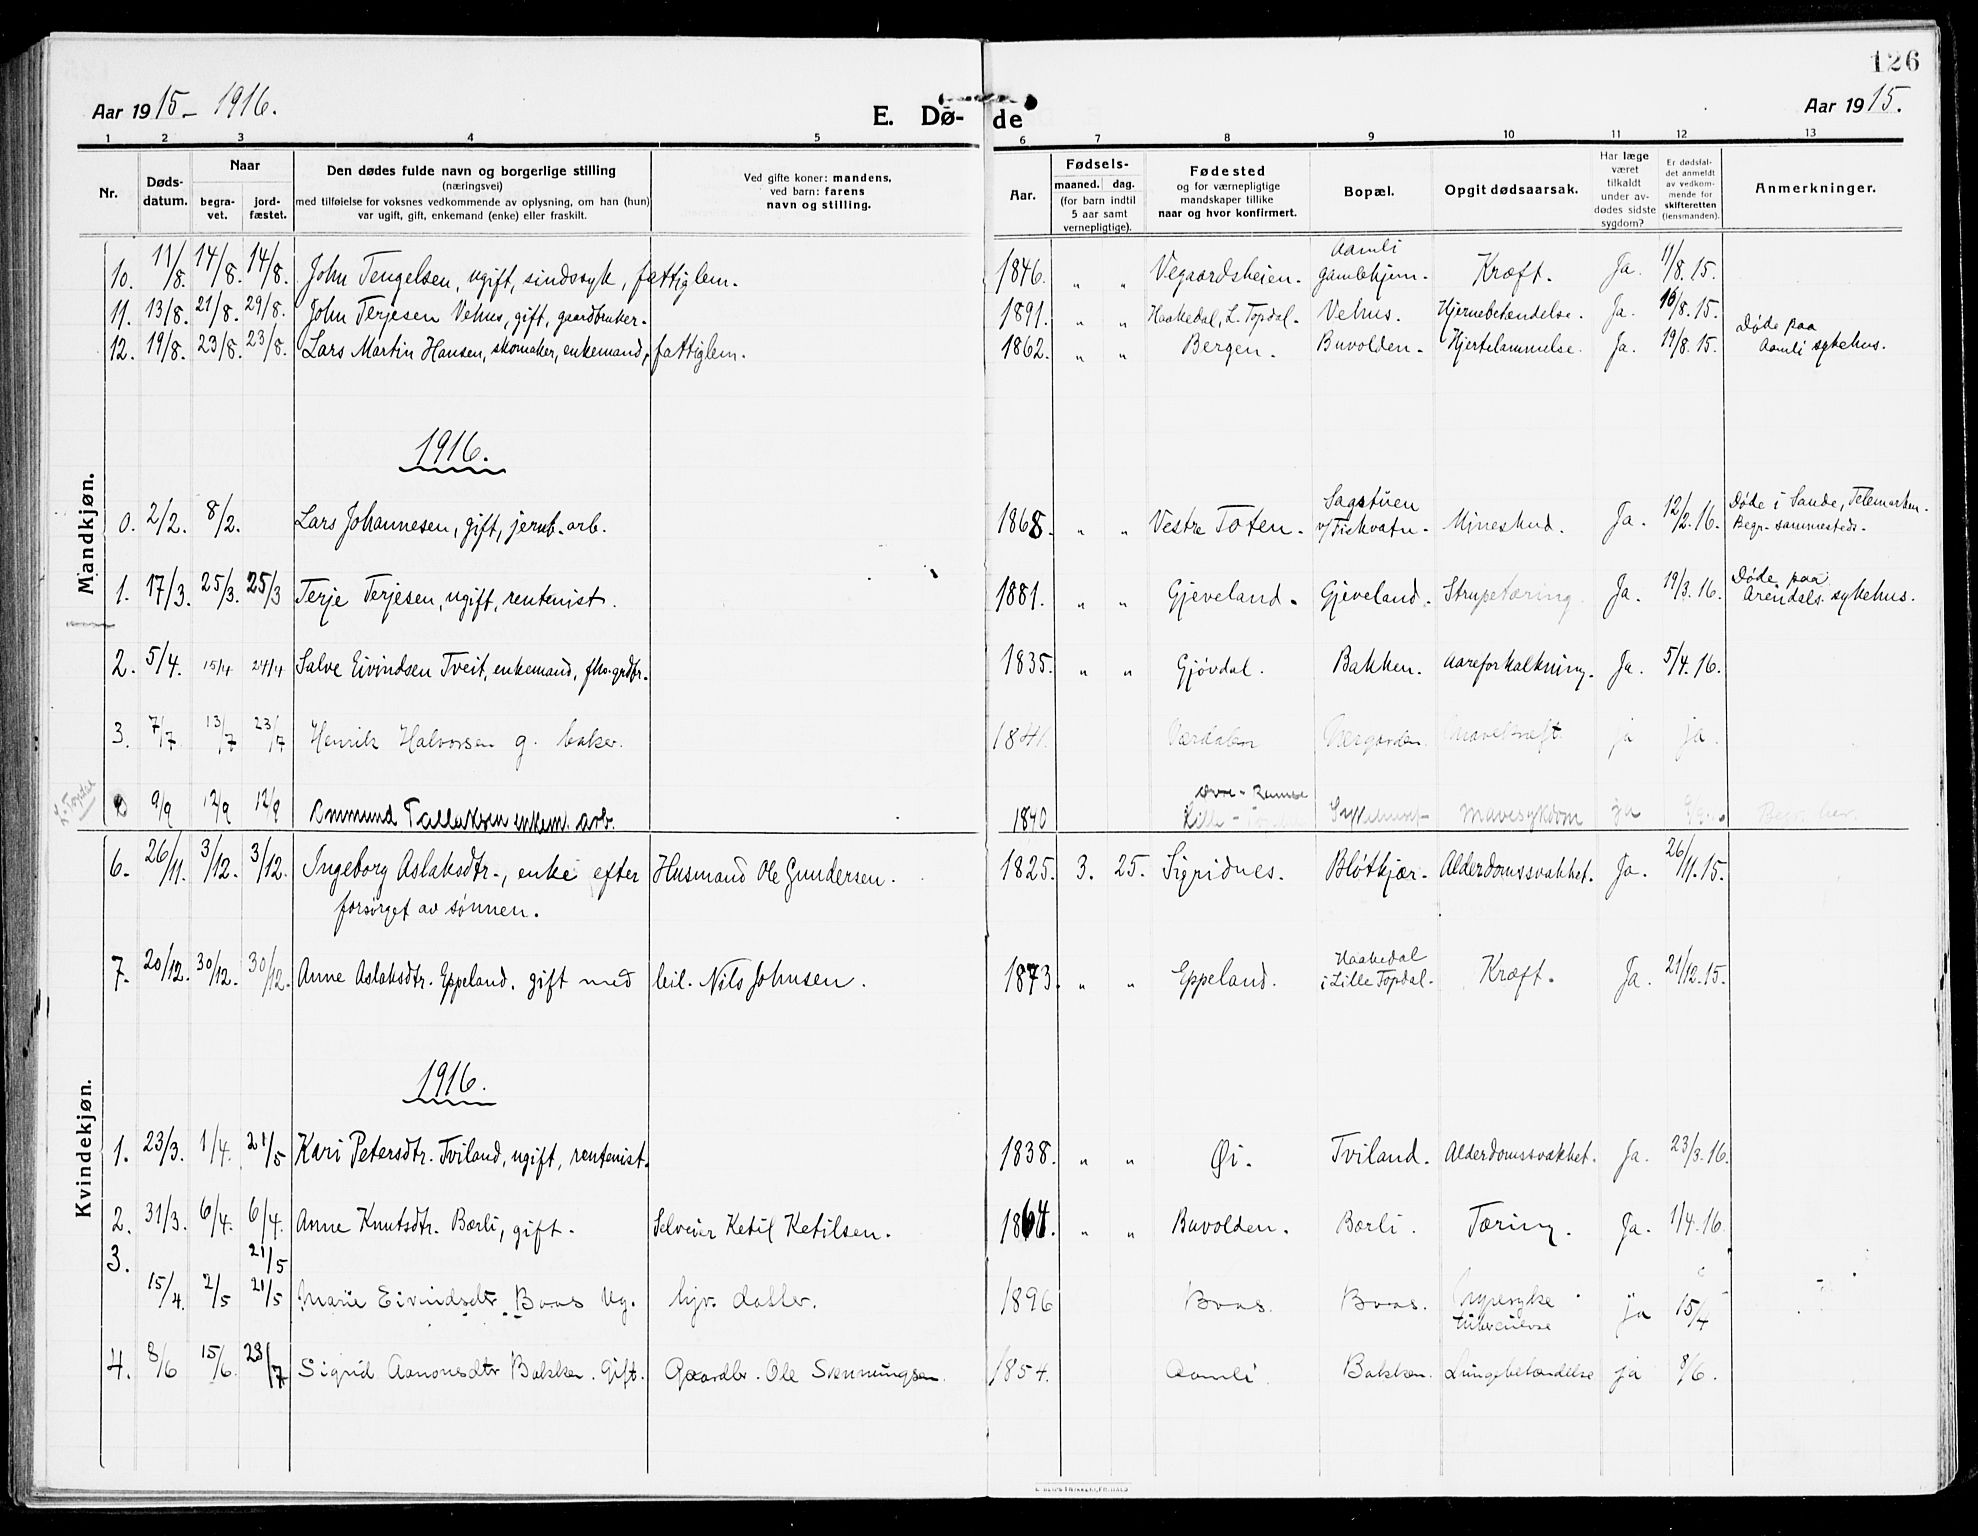 126
Aar 1915 - 1916.
E. Dø- de
Aar 1915.
1 2 3 4 5 6 7 8 9 10 11 12 13
Nr.
Døds-
datum.
Naar
begra-
vet.
jord-
fæstet.
Den dødes fulde navn og borgerlige stilling
(næringsvei)
med tilføielse for voksnes vedkommende av oplysning, om han (hun)
var ugift, gift, enkemand (enke) eller fraskilt.
Ved gifte koner: mandens,
ved barn: farens
navn og stilling.
Aar.
Fødsels-
maaned. dag.
(for barn indtil
5 aar samt
vernepligtige).
Fødested
og for værnepligtige
mandskaper tillike
naar og hvor konfirmert.
Bopæl.
Opgit dødsaarsak.
Har læge
været
tilkaldt
under av-
dødes sidste
sygdom?
Er dødsfal-
det anmeldt
av vedkom-
mende for
skifteretten
(lensmanden).
Anmerkninger.
Mandkjøn.
10. 11/8. 14/8. 14/8. John Tengelsen, ugift, sindssyk, fattiglem. 1846. " " Vegaardsheien. Aamli gamlehjem. Kræft. Ja. 11/8. 15.
11. 13/8. 21/8. 29/8. John Terjesen Vehus, gift, gaardbruker. 1891. " " Haakedal, L. Topdal. Vehus. Hjernebetændelse. Ja. 16/8. 15.
12. 19/8. 23/8. 23/8. Lars Martin Hansen, skomaker, enkemand, fattiglem. 1862. " " Bergen. Buvolden. Hjertelammelse. Ja. 19/8. 15. Døde paa Aamli sykehus.
1916.
0. 2/2. 8/2. Lars Johannesen, gift, jernb. arb. 1868. " " Vestre Toten. Sagstuen v/Fiskvatn. Mineskud. Ja. 12/2. 16. Døde i Sande, Telemarken. Begr. sammesteds.
1. 17/3. 25/3. 25/3 Terje Terjesen, ugift, rentenist. 1881. " " Gjeveland. Gjeveland. Strupetæring. Ja. 19/3. 16. Døde paa Arendals sykehus.
2. 5/4. 15/4 24/4 Salve Eivindsen Tveit, enkemand, fho. grdbr. 1835. " " Gjøvdal. Bakken. Aareforkalkning. Ja. 5/4. 16.
3. 7/7 13/7 23/7 Henrik Halvorsen g. baker. 1841. Værdalen Mavekræft. ja ja.
L. Topdal
9/9 12/9 12/9 Ommund Tallaksen enkem. arb. 1840 Lille - Sykehuset Mavesykdom ja 9/9 16 Begr. her.
Kvindekjøn.
6. 26/11. 3/12. 3/12. Ingeborg Aslaksdtr., enke efter Husmand Ole Gundersen. 1825. 3. 25. Sigridnes. Bløtkjær. Alderdomssvakhet. Ja. 26/11. 15.
forsørget av sønnen.
7. 20/12. 30/12. 30/12. Anne Aslaksdtr. Eppeland. gift med leil. Nils Johnsen. 1873. " " Eppeland. Haakedal i Lille Topdal. Kræft. Ja. 21/12. 15.
1916.
1. 23/3. 1/4. 21/5 Kari Petersdtr. Tviland, ugift, rentenist. 1838. " " Øi. Tviland. Alderdomssvakhet. Ja. 23/3. 16.
2. 31/3. 6/4. 6/4. Anne Knutsdtr. Børli, gift. Selveier Ketil Ketilsen. 1864. " " Buvolden. Børli. Tæring. Ja. 1/4. 16.
3. 21/5
15/4. 2/5 21/5 Marie Eivindsdtr Boas Ug. hjv. datter. 1896 Boas. Boas. tuberculose ja 15/4
4. 8/6 15/6. 23/7 Sigrid Aanonsdtr Bakken. Gift. Gaardbr. Ole Skenningsen. 1854. Aamli. Bakken. Lungebetændelse ja 8/6.